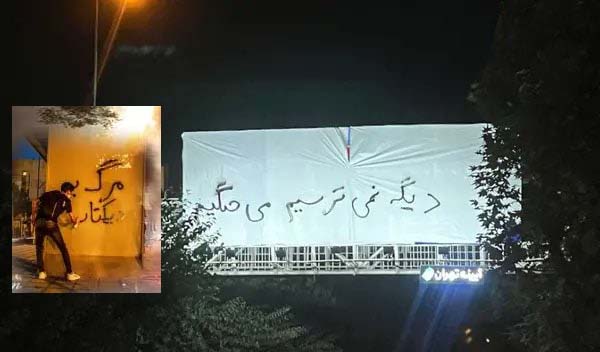 دیگه نمی ترسیم می جنگیم
مرگ بر
دیکتاتور
تهران